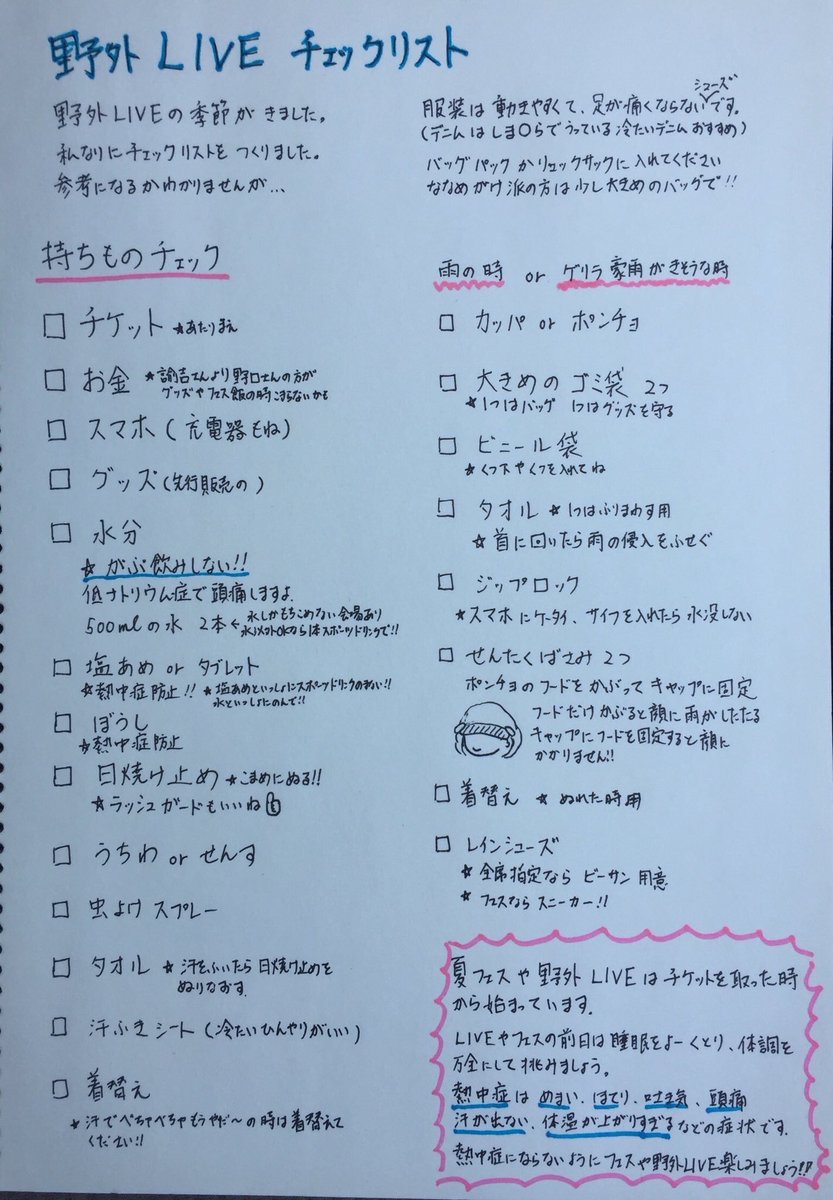 野外 LIVE チェックリスト
野外LIVEの季節がきました。
私なりにチェックリストをつくりました。
参考になるかわかりませんが…
シューズ
服装は動きやすくて、足が痛くならないです。
(デニムはしま〇らでうっている冷たいデニムおすすめ)
バッグパックかリュックサックに入れてください
ななめがけ派の方は少し大きめのバッグで!!
持ちものチェック
□ チケット ☆あたりまえ
□ お金 ☆諭吉さんより野口さんの方が
グッズやフェス飯の時こまらないかも
□ スマホ(充電器もね)
□ グッズ(先行販売の)
□ 水分
☆がぶ飲みしない!!
低ナトリウム症で頭痛しますよ
500mlの水 2本←水しかもちこめない会場あり
水以外OKなら1本スポーツドリンクで!!
□ 塩あめ or タブレット
☆熱中症防止!! ☆塩あめといっしょにスポーツドリンクのまない!!
水といっしょにのんで!!
□ ぼうし
☆熱中症防止
□ 日焼け止め ☆こまめにぬる!!
☆ラッシュガードもいいね
□ うちわ or せんす
□ 虫よけスプレー
□ タオル ☆汗をふいたら日焼け止めを
ぬりなおす
□ 汗ふきシート(冷たいひんやりがいい)
□ 着替え
☆汗でべちゃべちゃもうやだ〜の時は着替えて
ください!!
雨の時 or ゲリラ豪雨がきそうな時
□ カッパ or ポンチョ
□ 大きめのゴミ袋 2つ
☆1つはバッグ 1つはグッズを守る
□ ビニール袋
☆くつ下やくつを入れてね
□ タオル ☆1つはふりまわす用
☆首に回したら雨の侵入をふせぐ
□ ジップロック
☆スマホにケータイ、サイフを入れたら水没しない
□ せんたくばさみ2つ
ポンチョのフードをかぶってキャップに固定
フードだけかぶると顔に雨がしたたる
キャップにフードを固定すると顔に
かかりません!!
□ 着替え ☆ぬれた時用
□ レインシューズ
☆全席指定なら ビーサン用意
☆フェスなら スニーカー!!
夏フェスや野外LIVEはチケットを取った時
から始まっています.
LIVEやフェスの前日は睡眠をよーくとり、体調を
万全にして挑みましょう。
熱中症はめまい、ほてり、吐き気、頭痛
汗が出ない、体温が上がりすぎるなどの症状です.
熱中症にならないようにフェスや野外LIVE楽しみましょう!!